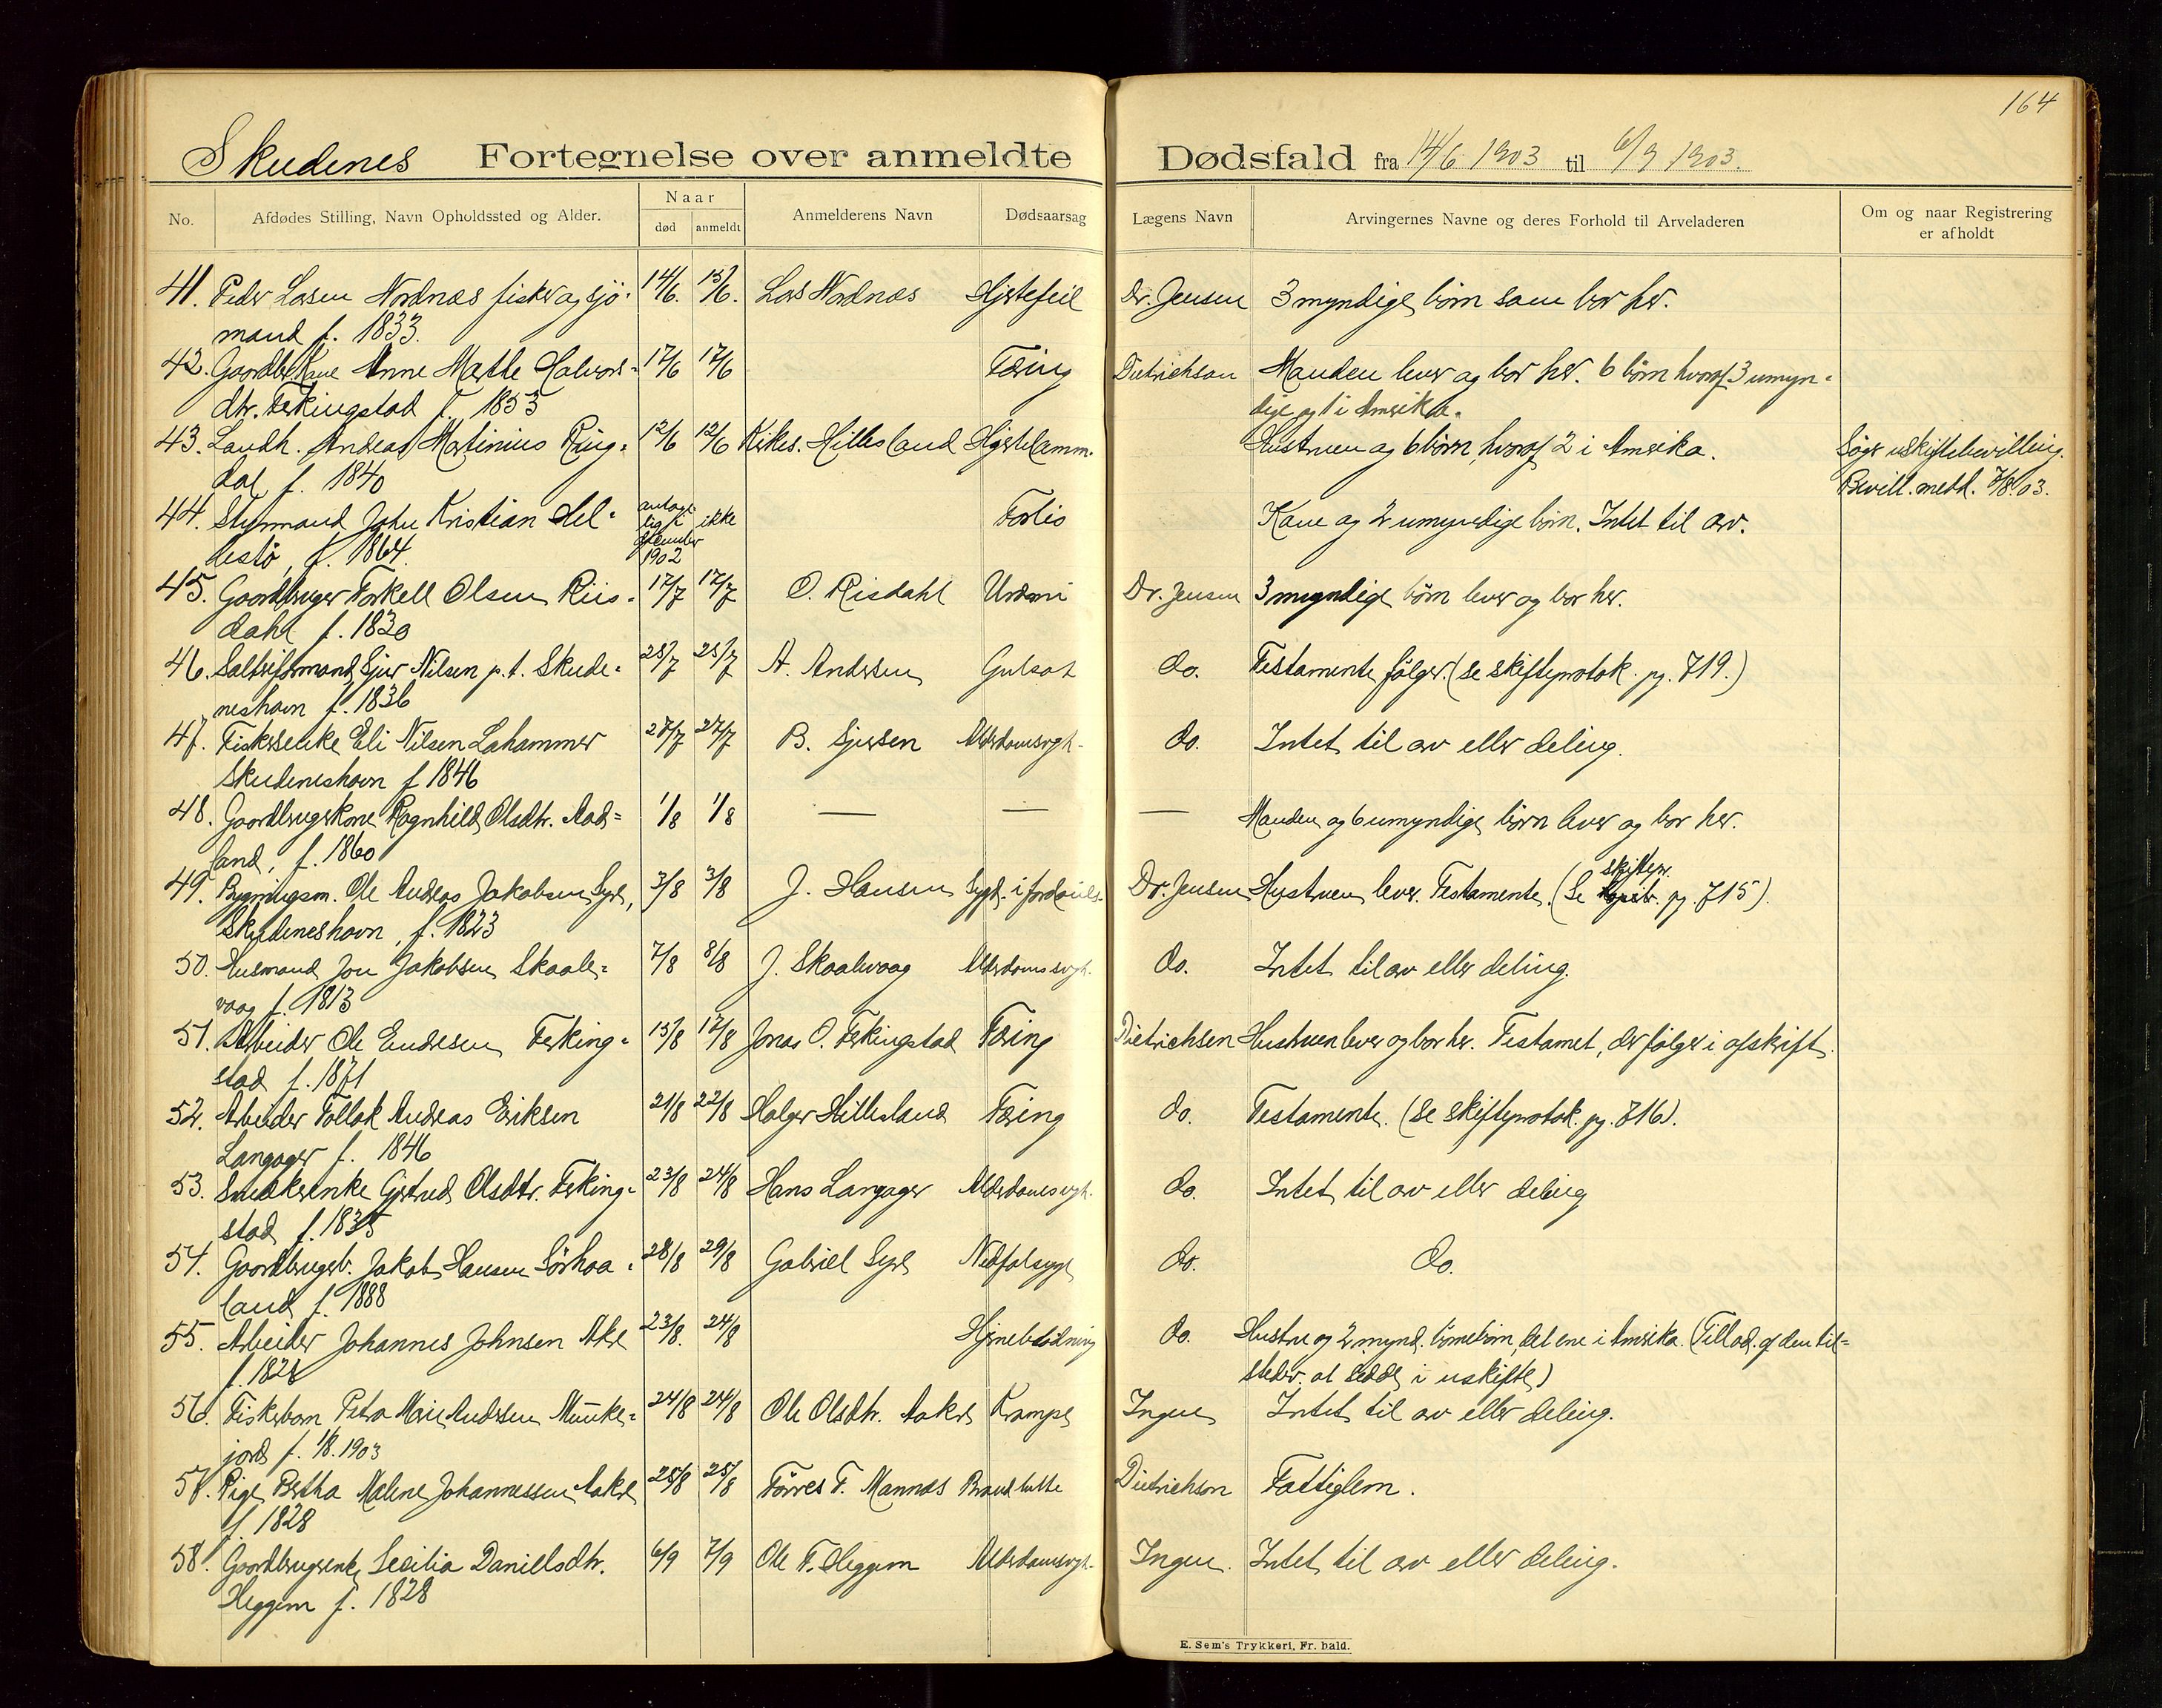 164
Skudenes Fortegnelse over anmeldte Dødsfald fra 14/6 1903 til 6/9 1903.
No. Afdødes Stilling, Navn Opholdssted og Alder. Naar død anmeldt Anmelderens Navn Dødsaarsag Lægens Navn Arvingernes Navne og deres Forhold til Arveladeren Om og naar Registrering er afholdt
41. Peder Larsen Nordnæs fisker og sjö- 14/6. 15/6. Lars Nordnæs Hjertefeil Dr. Jensen 3 myndige börn som bor her.
mand f. 1833.
42. Gaardbr. Kone Anne Marthe Halvors- 17/6 17/6 Tæring Dietrichson Manden lever og bor her. 6 börn hvoraf 3 umyn-
dtr. Ferkingstad f. 1853 dige og 1 i Amerika.
43. Landh. Andreas Martinius Ring- 12/6 12/6 Kirkes. Hillesland Hjertelamm. Hustruen og 6 börn, hvoraf 2 i Amerika. Söger uskiftebevilling.
dal f. 1840 Bevill. medd. 7/8.03.
44. Styrmand John Kristian Hil- antage- ligt december 1902 ikke Forlis Kone og 2 umyndige börn. Intet til arv.
lestö, f. 1864.
45. Gaardbruger Torkell Olsen Riis- 17/7 17/7 O. Risdahl Uræmi Dr. Jensen 3 myndige börn lever og bor her.
dahl f. 1830
46. Sjur Nilsen p.t. Skude- 25/7 25/7 A. Andersen Gulsot do. Testamente fölger. (se skifteprotok. pg. 719.)
neshavn f. 1836
47. Fiskerenke Eli Nilsen Lahammer 27/7 27/7 B. Sjursen Alderdomssygh. do. Intet til arv eller deling.
Skudeneshavn f 1846
48. Gaardbrugerkone Ragnhild Olsdtr. Aad- 1/8 1/8 — — — Manden og 6 umyndige börn lever og bor her.
land, f. 1860
49. Bygningsm. Ole Andreas Jakobsen Syre, 3/8 3/8 J. Hansen Sygd. i fordöiels. Dr. Jensen Hustruen lever. Testamente. (Se skiftepr. pg. 715).
Skudeneshavn, f. 1823
50. Husmand Jon Jakobsen Skaale- 7/8 8/8 J. Skaalevaag Alderdomssygh. do. Intet til arv eller deling.
vaag f. 1813
51. Arbeider Ole Endresen Ferking- 15/8 17/8 Jonas O. Ferkingstad Tæring Dietrichsen Hustruen lever og bor her. Testamet, der fölger i afskrift.
stad f. 1871
52. Arbeider Tollak Andreas Eriksen 21/8 22/8 Holger Hillesland Tæring do. Testamente. (se skifteprotok. pg. 716).
Langager f. 1846
53. Gjertrud Olsdtr. Ferking- 23/8 24/8 Hans Langager Alderdomssygh. do. Intet til arv eller deling
stad f. 1835
54. Gaardbrugerb. Jakob Hansen Sörhaa- 28/8 29/8 Gabriel Syre Nedfalsyge do. do.
land f. 1888
55. Arbeider Johannes Johnsen Akre 23/8. 24/8 Hjerneblödning do. Hustru og 2 mynd. börnebörn, det ene i Amerika. (Tillad. af den til-
f. 1828 stedev. at sidde i uskifte)
56. Fiskerbarn Petra Marie Andersen Munke- 24/8 24/8 Ole Olsdtr. Aakre Krampe Ingen Intet til arv eller deling.
jord f. 1/8. 1903
57. Pige Bertha Malene Johannessen Aakre 25/8 25/8 Törres T. Mannæs Brandtutte Dietrichson Fattiglem.
f. 1828
58. Gaardbrugerenke Secilia Danielsdtr. 6/9 7/9 Ole T. Heggem Alderdomssygh. Ingen. Intet til arv eller deling.
Heggem f. 1828
E. Sem's Trykkeri, Fr. hald.